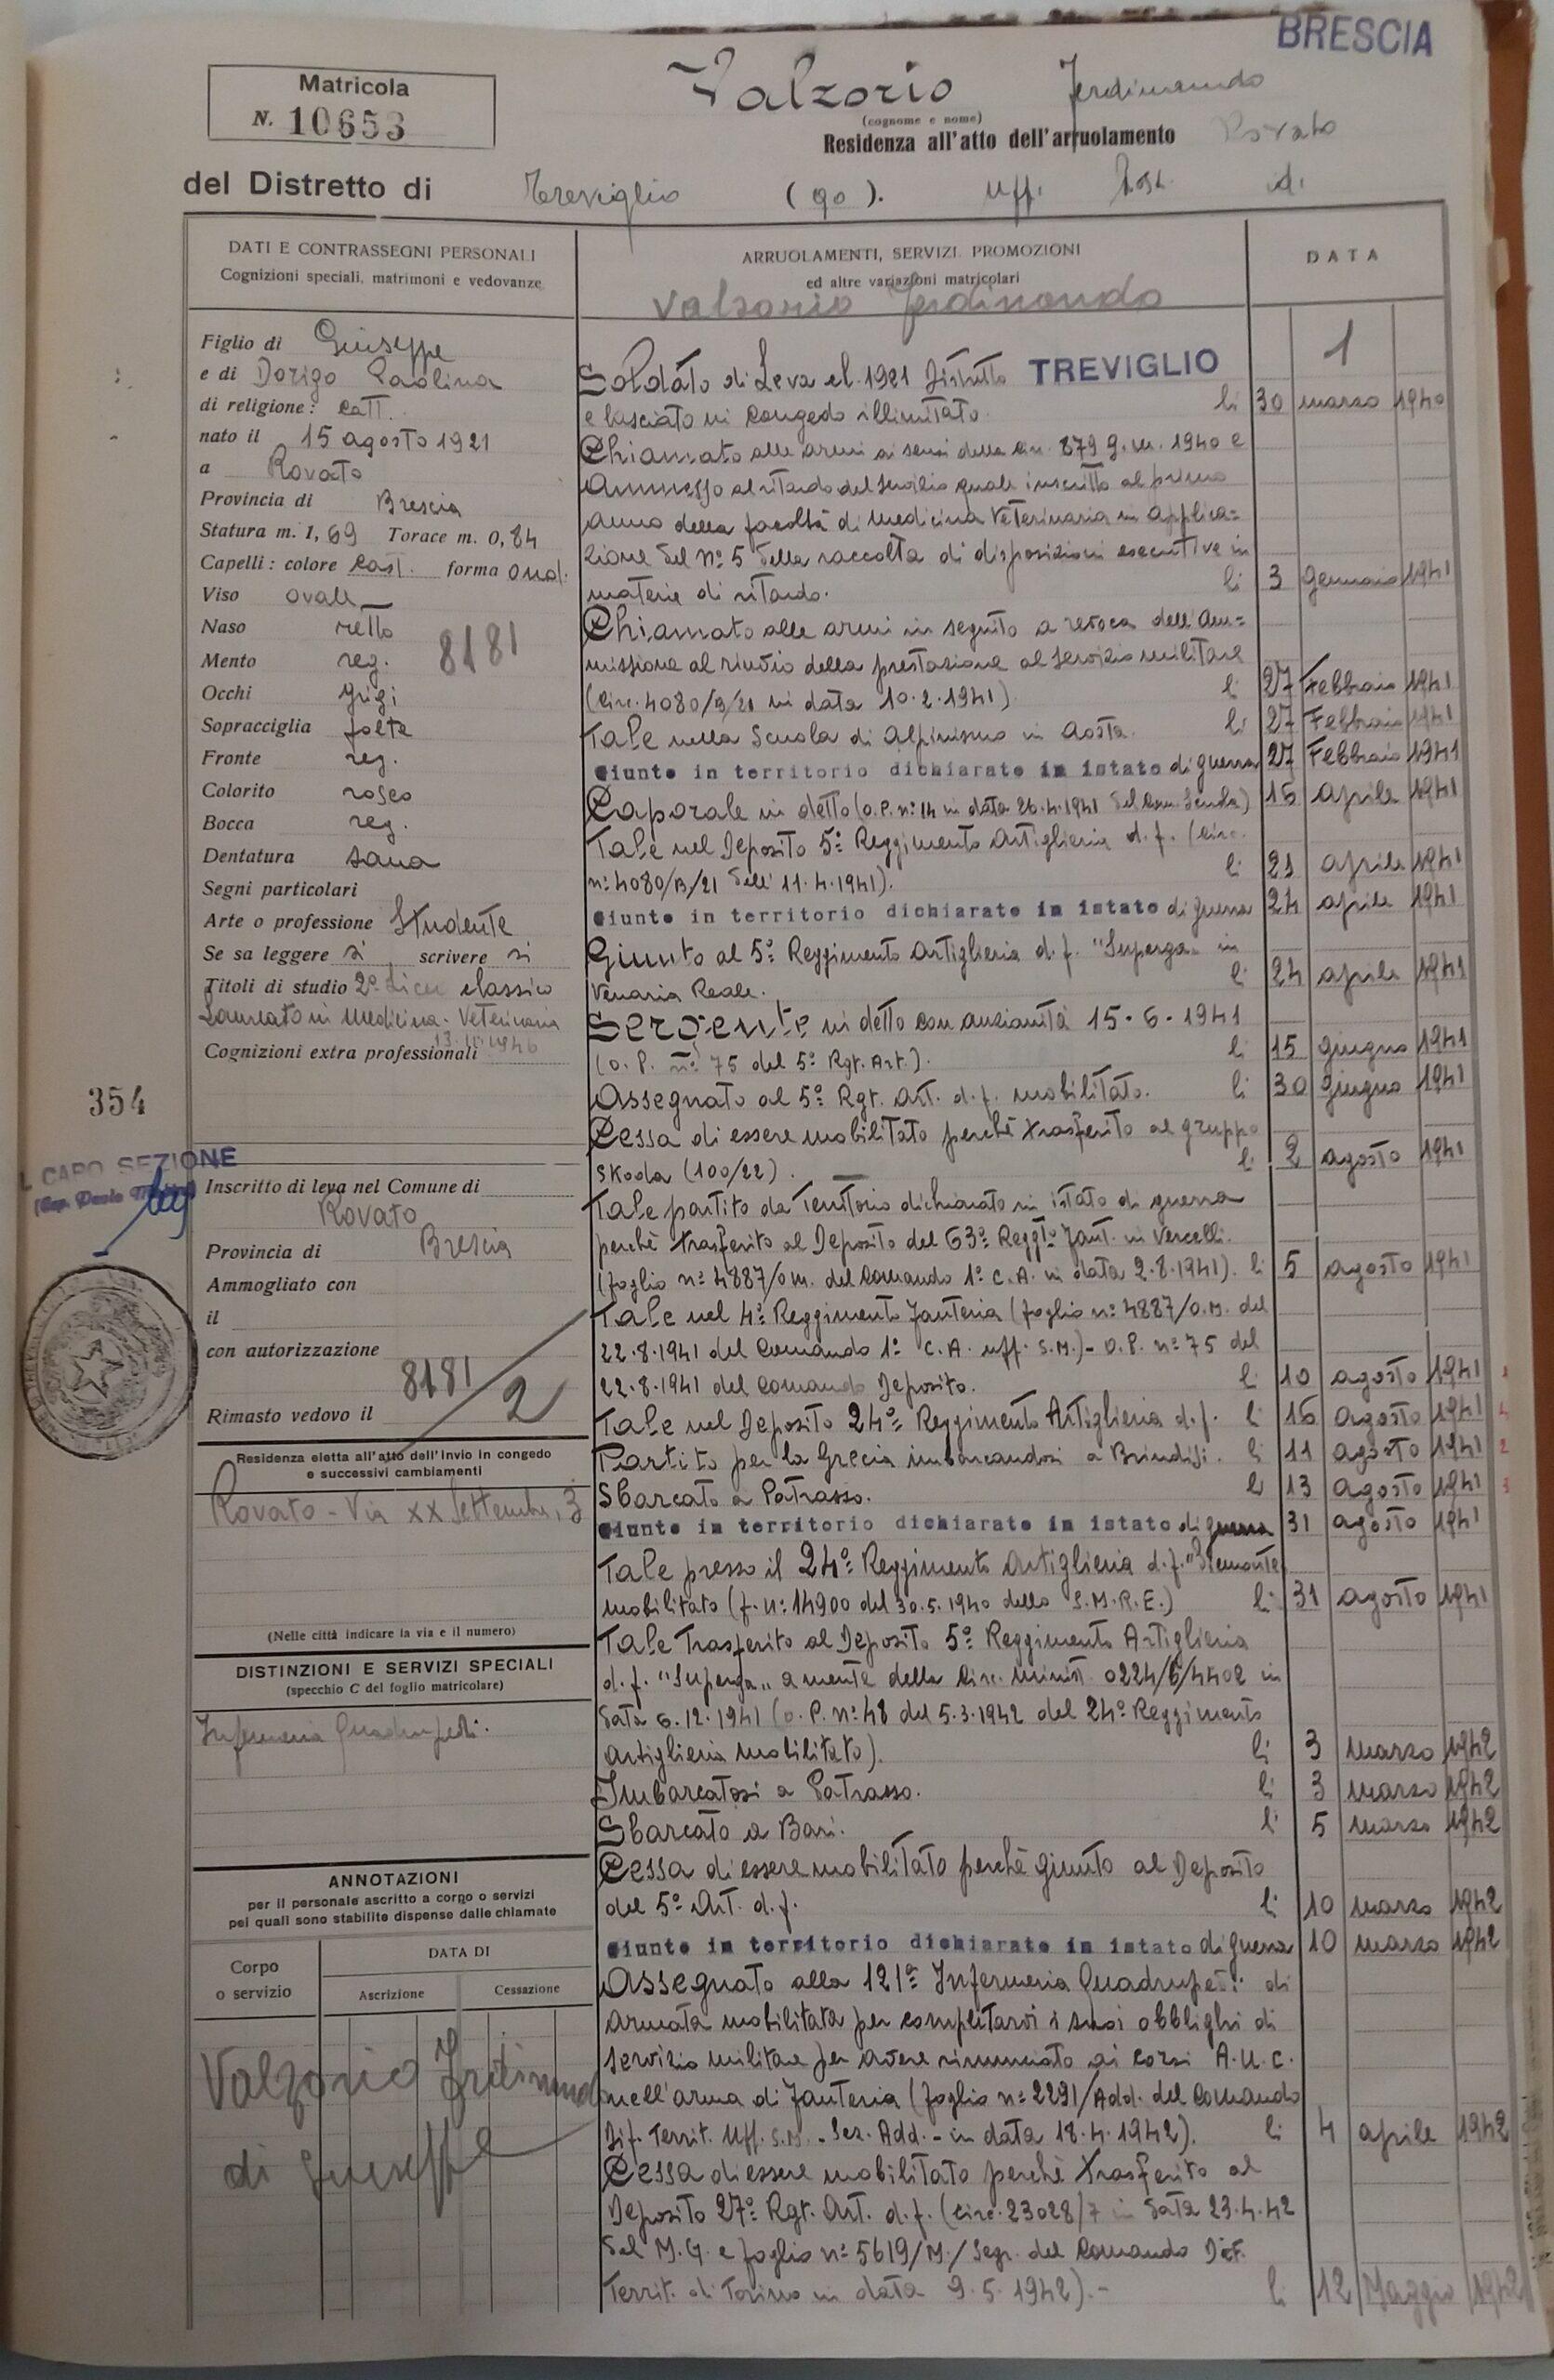 BRESCIA
Matricola
N. 10653
Valzorio Ferdinando
(cognome e nome)
Residenza all'atto dell'arruolamento Rovato
del Distretto di Treviglio (90). Uff.
DATI E CONTRASSEGNI PERSONALI
Cognizioni speciali, matrimoni e vedovanze
ARRUOLAMENTI, SERVIZI, PROMOZIONI
ed altre variazioni matricolari
DATA
Valzorio Ferdinando
1
Figlio di Giuseppe
e di Dorigo Paolina
di religione: catt.
nato il 15 agosto 1921
a Rovato
Provincia di Brescia
Statura m. 1,69 Torace m. 0,84
Capelli: colore cast. forma ond.
Viso ovale
Naso retto
Mento reg.
8181
Occhi grigi
Sopracciglia folte
Fronte reg.
Colorito roseo
Bocca reg.
Dentatura sana
Segni particolari
Arte o professione Studente
Se sa leggere sì scrivere sì
Titoli di studio 2° Liceo classico
Laureato in Medicina Veterinaria
Cognizioni extra professionali
354
CAPO SEZIONE
Inscritto di leva nel Comune di
Rovato
Provincia di Brescia
Ammogliato con
il
con autorizzazione
8181/2
Rimasto vedovo il
Residenza eletta all'atto dell'invio in congedo
e successivi cambiamenti
Rovato - Via XX Settembre, 3
(Nelle città indicare la via e il numero)
DISTINZIONI E SERVIZI SPECIALI
(specchio C del foglio matricolare)
Infermeria Quadrupedi.
ANNOTAZIONI
per il personale ascritto a corpo o servizi
pei quali sono stabilite dispense dalle chiamate
Corpo
o servizio
DATA DI
Ascrizione
Cessazione
Valzorio Ferdinando
di Giuseppe
Soldato di Leva cl. 1921 Distretto TREVIGLIO
e lasciato in congedo illimitato. li 30 marzo 1940
Chiamato alle armi ai sensi della circ. 879 g.m. 1940 e
ammesso al ritardo del servizio quale inscritto al primo
anno della facoltà di medicina Veterinaria in applica=
zione del n° 5 della raccolta di disposizioni esecutive in
materia di ritardo. li 3 gennaio 1941
Chiamato alle armi in seguito a revoca dell'am=
missione al rinvio della prestazione al servizio militare
(circ. 4080/B/21 in data 10.2.1941) li 27 Febbraio 1941
Tale nella Scuola di Alpinismo in Aosta. li 27 Febbraio 1941
Giunto in territorio dichiarato in istato di guerra 27 Febbraio 1941
Caporale in detto (O.P. n° 14 in data 26.4.1941 16 aprile 1941
Tale nel Deposito 5° Reggimento Artiglieria d.f. (circ.
n° 4080/B/21 dell' 11.4.1941). li 21 aprile 1941
Giunto in territorio dichiarato in istato di guerra 24 aprile 1941
Giunto al 5° Reggimento Artiglieria d.f. "Superga" in
Venaria Reale. li 24 aprile 1941
Sergente in detto con anzianità 15.6.1941
(O.P. n° 75 del 5° Rgt. Art.). li 15 giugno 1941
Assegnato al 5° Rgt. Art. d.f. mobilitato. li 30 giugno 1941
Cessa di essere mobilitato perchè trasferito al gruppo
Skoda (100/22). li 2 agosto 1941
Tale partito da Territorio dichiarato in istato di guerra
perchè trasferito al Deposito del 63° Reggto Fant. in Vercelli.
(foglio n° 4887/om. del Comando 1° C.A. in data 2.8.1941). li 5 agosto 1941
Tale nel 4° Reggimento Fanteria (foglio n° 4887/O.M. del
22.8.1941 del Comando 1° C.A. uff. S.M.) - O.P. n° 75 del
22.8.1941 del Comando Deposito. li 10 agosto 1941
Tale nel Deposito 24° Reggimento Artiglieria d.f. li 16 agosto 1941
Partito per la Grecia imbarcandosi a Brindisi. li 11 agosto 1941 2
Sbarcato a Patrasso. li 13 agosto 1941 3
Giunto in territorio dichiarato in istato di guerra 31 agosto 1941
Tale presso il 24° Reggimento Artiglieria d.f. "Piemonte"
mobilitato (f. n° 14900 del 30.5.1940 dello S.M.R.E.) li 31 agosto 1941
Tale Trasferito al Deposito 5° Reggimento Artiglieria
d.f. "Superga" a mente della circ. minist. 0224/6/4402 in
data 6.12.1941 (o.P. n° 48 del 5.3.1942 del 24° Reggimento
Artiglieria mobilitato). li 3 marzo 1942
Imbarcatosi a Patrasso. li 3 marzo 1942
Sbarcato a Bari. li 5 marzo 1942
Cessa di essere mobilitato perchè giunto al Deposito
del 5° Art. d.f. li 10 marzo 1942
Giunto in territorio dichiarato in istato di guerra 10 marzo 1942
Assegnato alla 121ª Infermeria Quadrupedi di
armata mobilitata per completarvi i suoi obblighi di
servizio militare per avere rinunciato ai corsi A.U.C.
nell'arma di Fanteria (foglio n° 2291/Add. del Comando
Dif. Territ. Uff. S.M. - Sez. Add. - in data 18.4.1942). li 4 aprile 1942
Cessa di essere mobilitato perchè trasferito al
Deposito 27° Rgt. Art. d.f. (circ. 23028/7 in data 23.4.42
del M.G. e foglio n° 5619/M./Segr. del Comando Dif.
Territ. di Torino in data 9.5.1942).- li 12 Maggio 1942